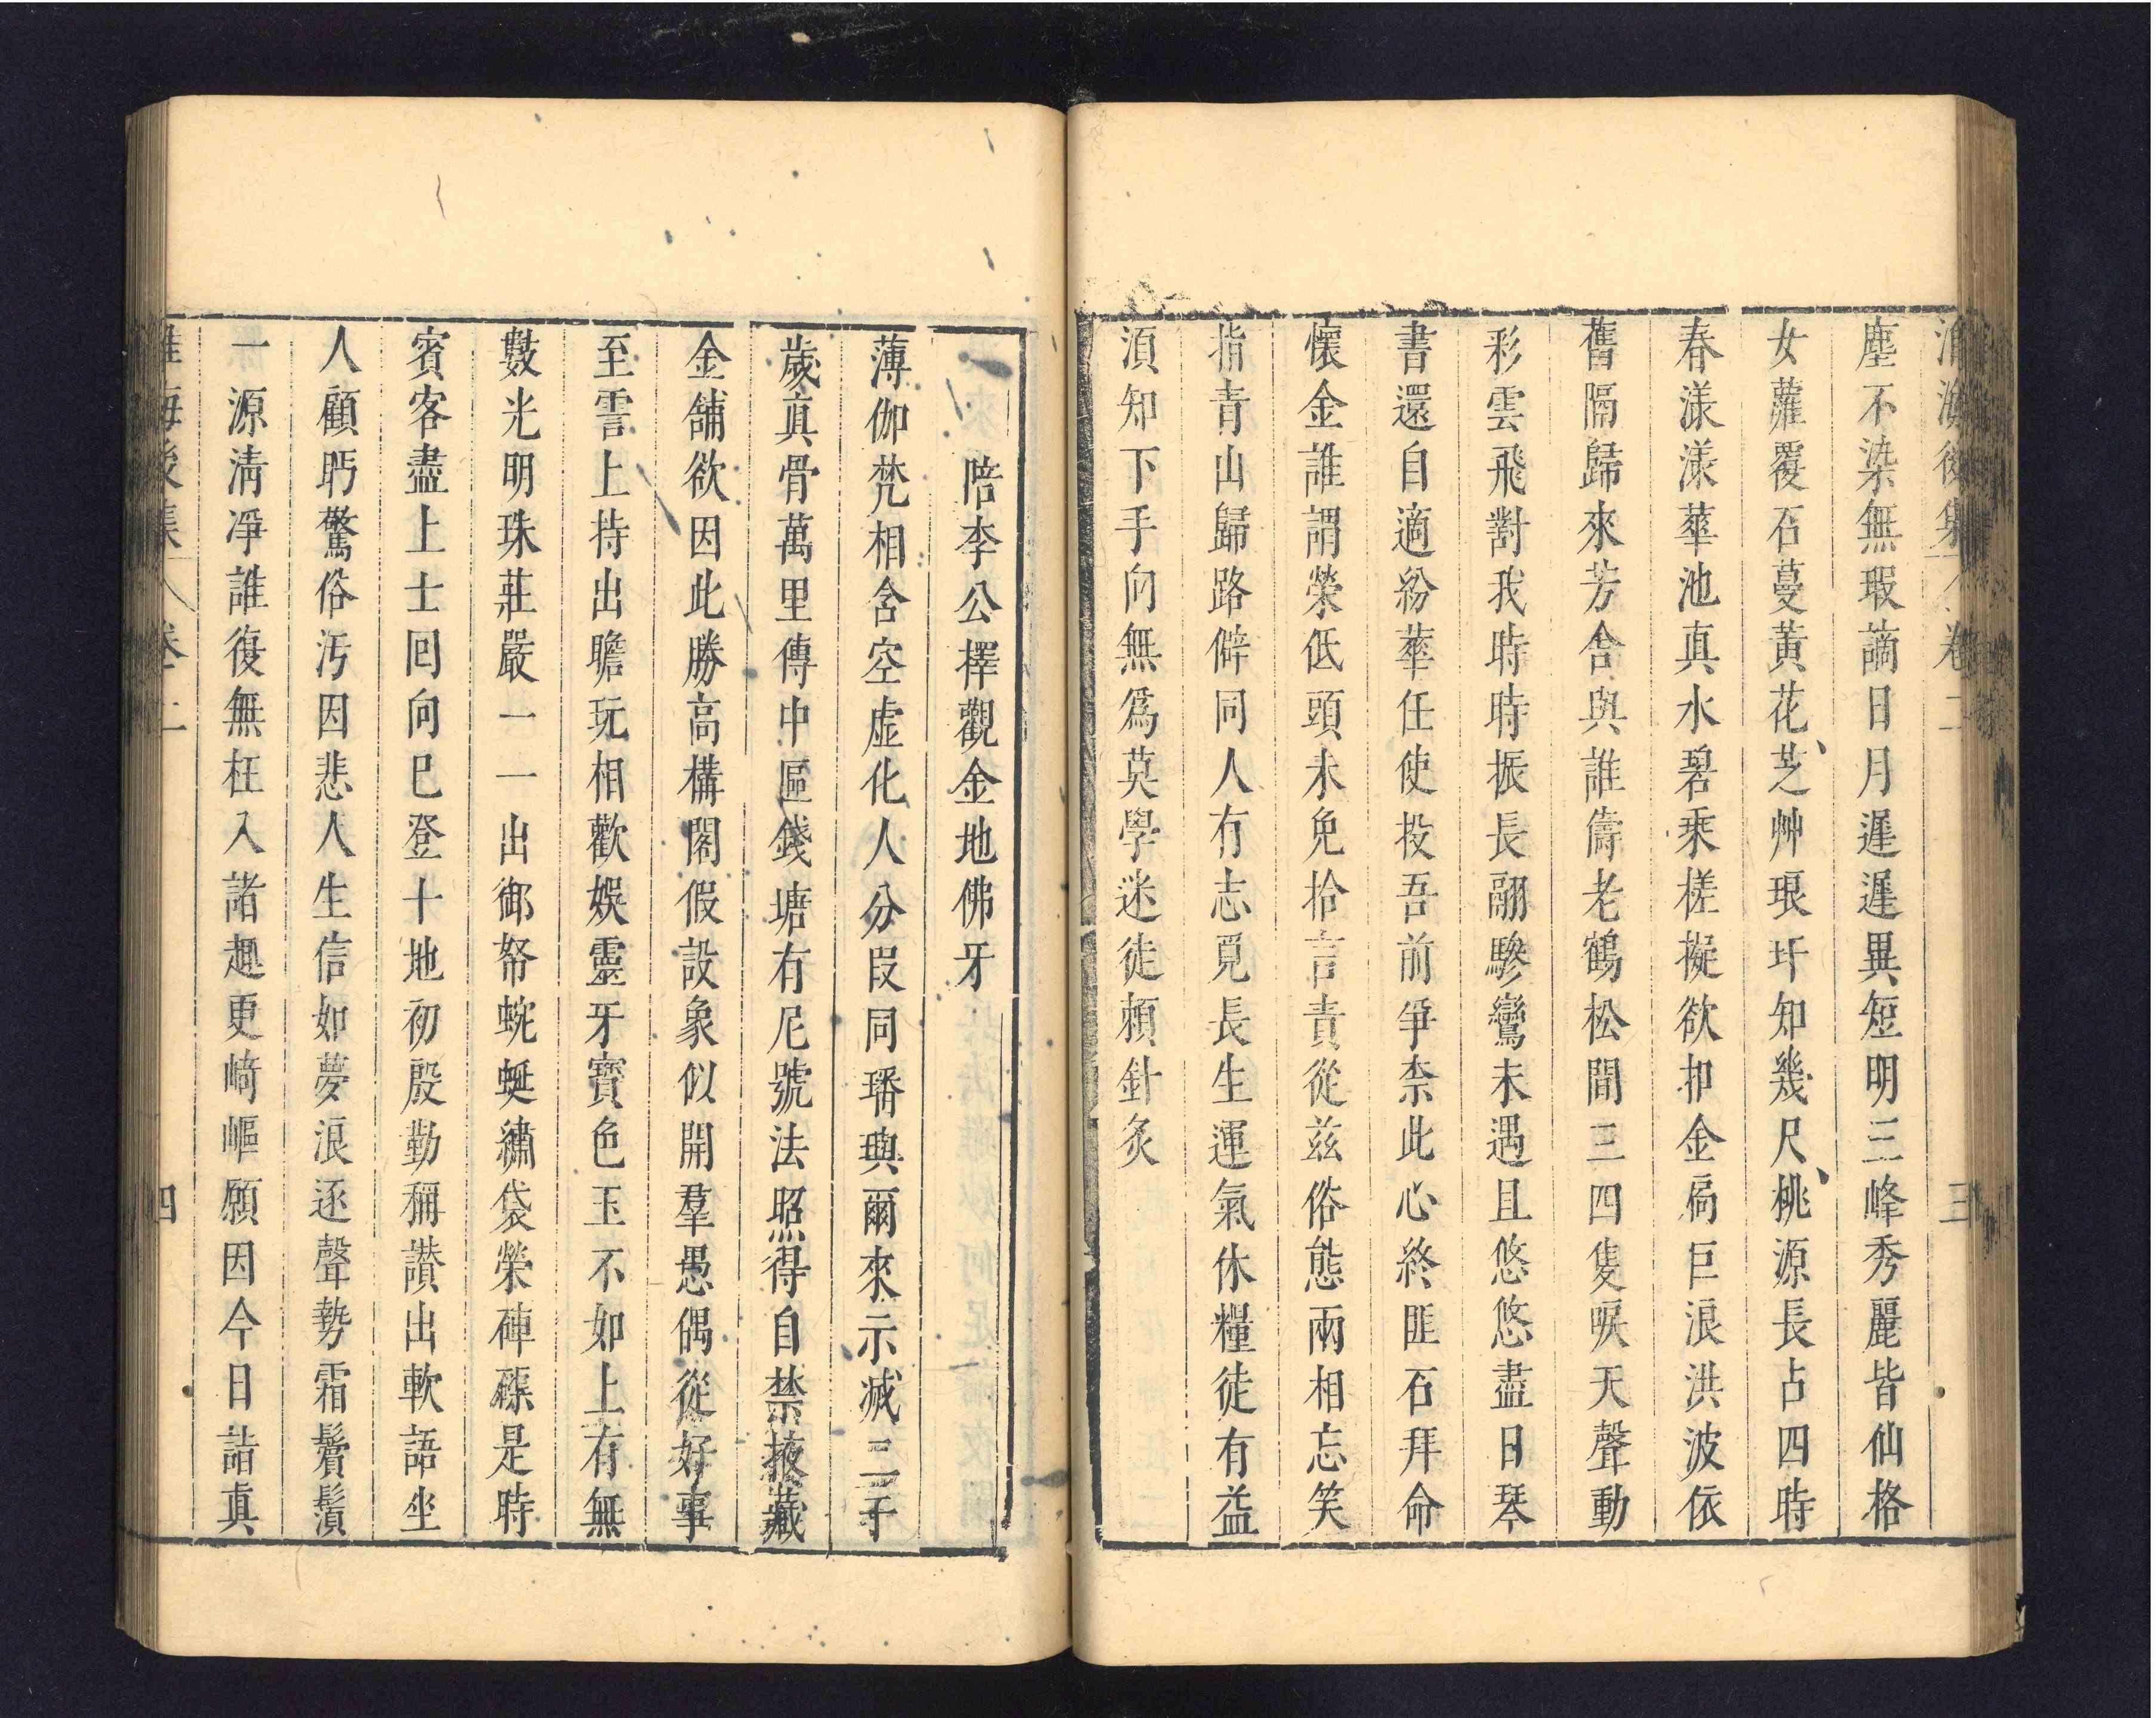 淮海後集 卷二 三
塵不染無瑕謫日月遲遲異短明三峰秀麗皆仙格
女蘿覆石蔓黃花芝艸琅玕知幾尺桃源長占四時
春漾漾華池真水碧乘槎擬欲扣金扃巨浪洪波依
舊隔歸來芳舍與誰儔老鶴松間三四隻唳天聲動
彩雲飛對我時時振長翮驂鸞未遇且悠悠盡日琴
書還自適紛華任使投吾前爭柰此心終匪石拜命
懷金誰謂榮低頭未免拾言責從茲俗態兩相忘笑
指青山歸路僻同人有志覓長生運氣休糧徒有益
須知下手向無爲莫學迷徒頼針灸
陪李公擇觀金地佛牙
薄伽梵相含空虛化人分叚同璠璵爾來示滅二千
歲真骨萬里傳中區錢塘有尼號法照得自禁掖藏
金舖欲因此勝高構閣假設象似開羣愚偶從好事
至霅上持出瞻玩相歡娛靈牙寶色玉不如上有無
數光明珠莊嚴一一出御帑蜿蜒繡袋榮硨磲是時
賓客盡上士囘向巳登十地初殷勤稱讃出軟語坐
人顧眄驚俗汚因悲人生信如夢浪逐聲勢霜鬢鬚
一源清淨誰復無枉入諸趣更崎嶇願因今日詣真
淮海後集 卷二 四